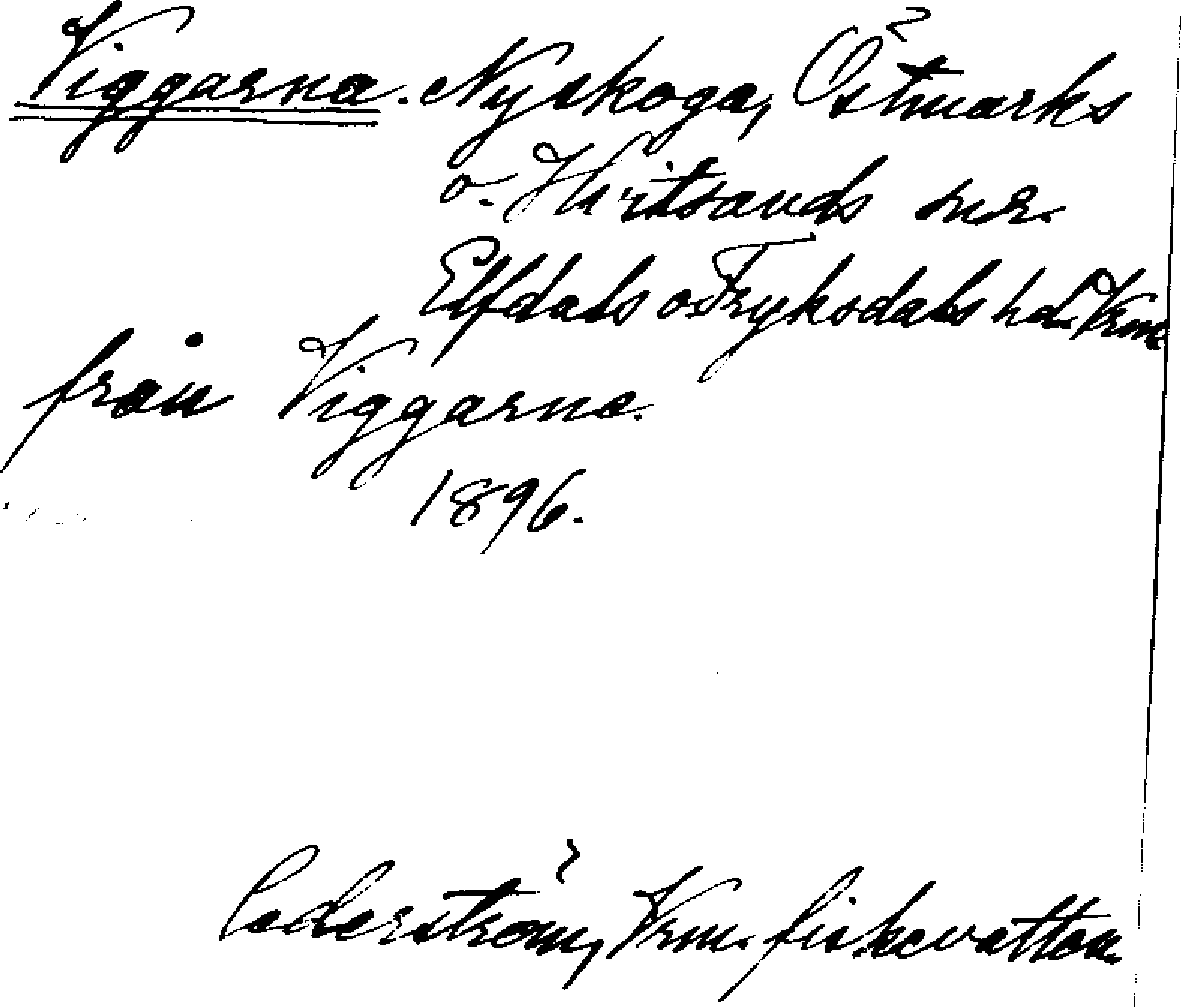 Viggarna. Nyskoga, Östmarks
o. Hvitsands snr.
Elfdals o Fryksdals hd. Vrm.
från Viggarne.
1896.
Cederström, Vrm. fiskevatten.